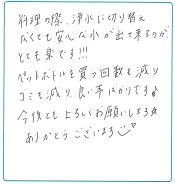 料理の際、浄水に切り替え
なくても安心な水が出て来るのが
とても楽です!!!
ペットボトルを買う回数も減り
ゴミも減り、良い事ばかりです♪
今後とも よろしくお願いします☆
ありがとうございます